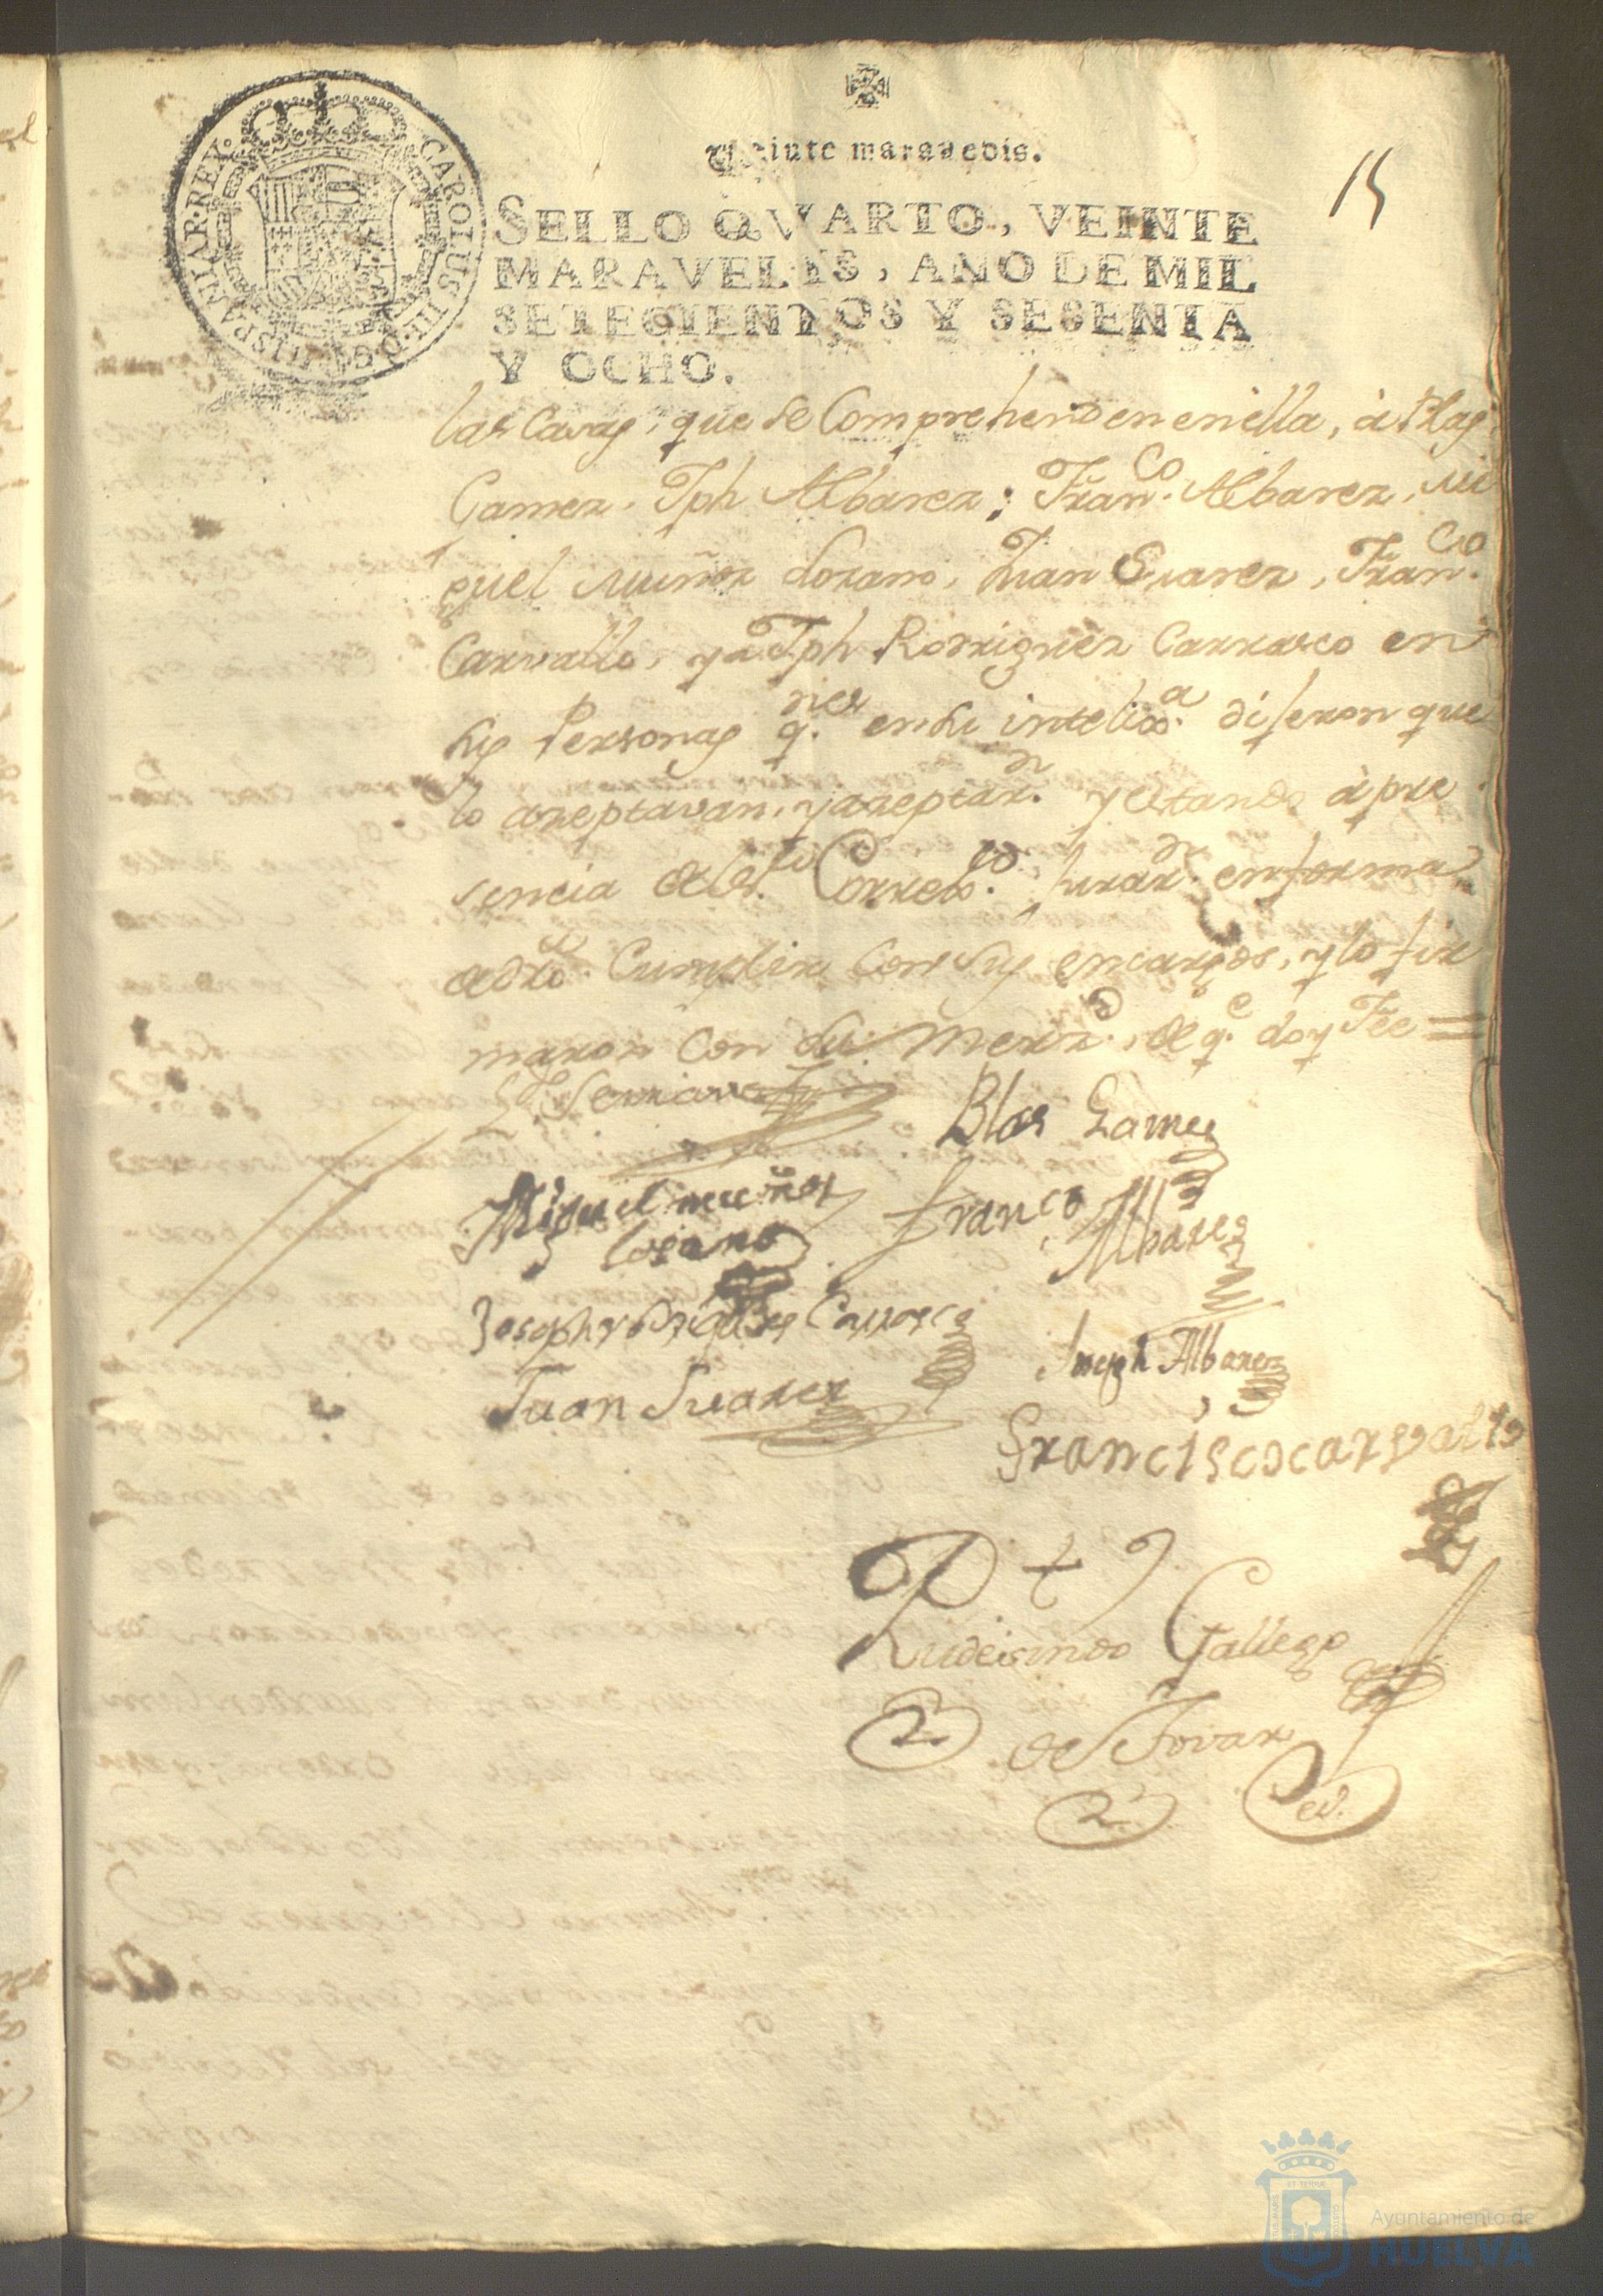 CAROLUS III D G HISPANIAR REX
Veinte maravedis.
SELLO QVARTO, VEINTE
MARAVEDIS, AÑO DE MIL
SETECIENTOS Y SESENTA
Y OCHO.
15
las Casas, que se Comprehenden en ella, à Blas
Gamez, Jph Albarez; Franco. Albarez, Mi
guel Muñoz Lozano, Juan Suarez, Franco.
Carvallo, y a Jph Rodriguez Carrasco en
sus Personas qnes. en su intelixa. dijeron que
lo azeptavan, y azeptan. y estando à pre
sencia Correxor. juraron. en forma
de dro. Cumplir Con sus encargos, y lo fir
maron Con su Merzd., de qe. doy Fee =
Ldo. Serrano
Blas Gamez
Miguel muñoz
Lozano
Franco Albares
Joseph rodrigues Carrasco
Joseph Albarez
Juan Suarez
Francisco carvallo
Rudesindo Gallego
de Tovar
Ayuntamiento de
HUELVA